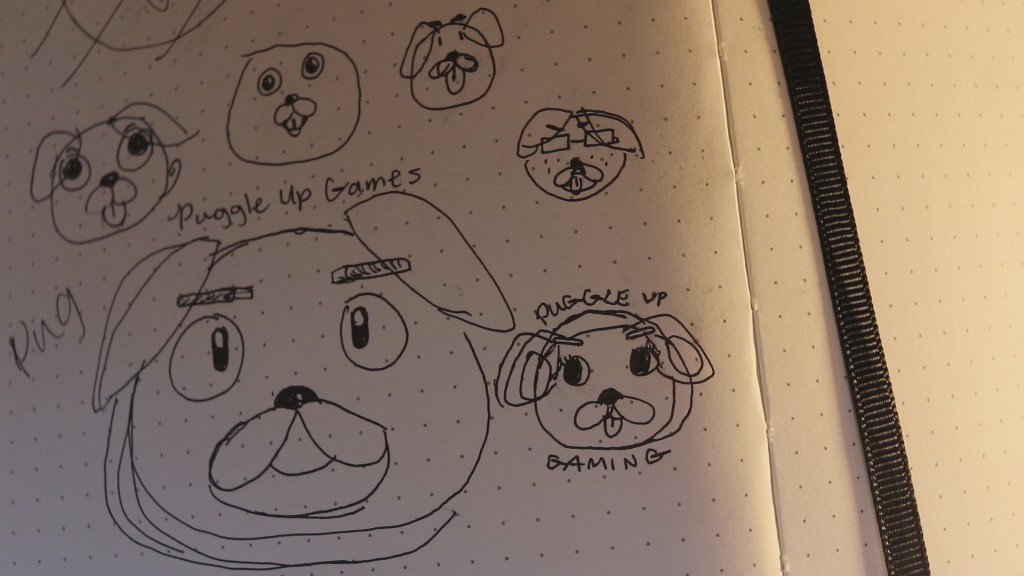 Puggle Up Games
PUGGLE UP
GAMING